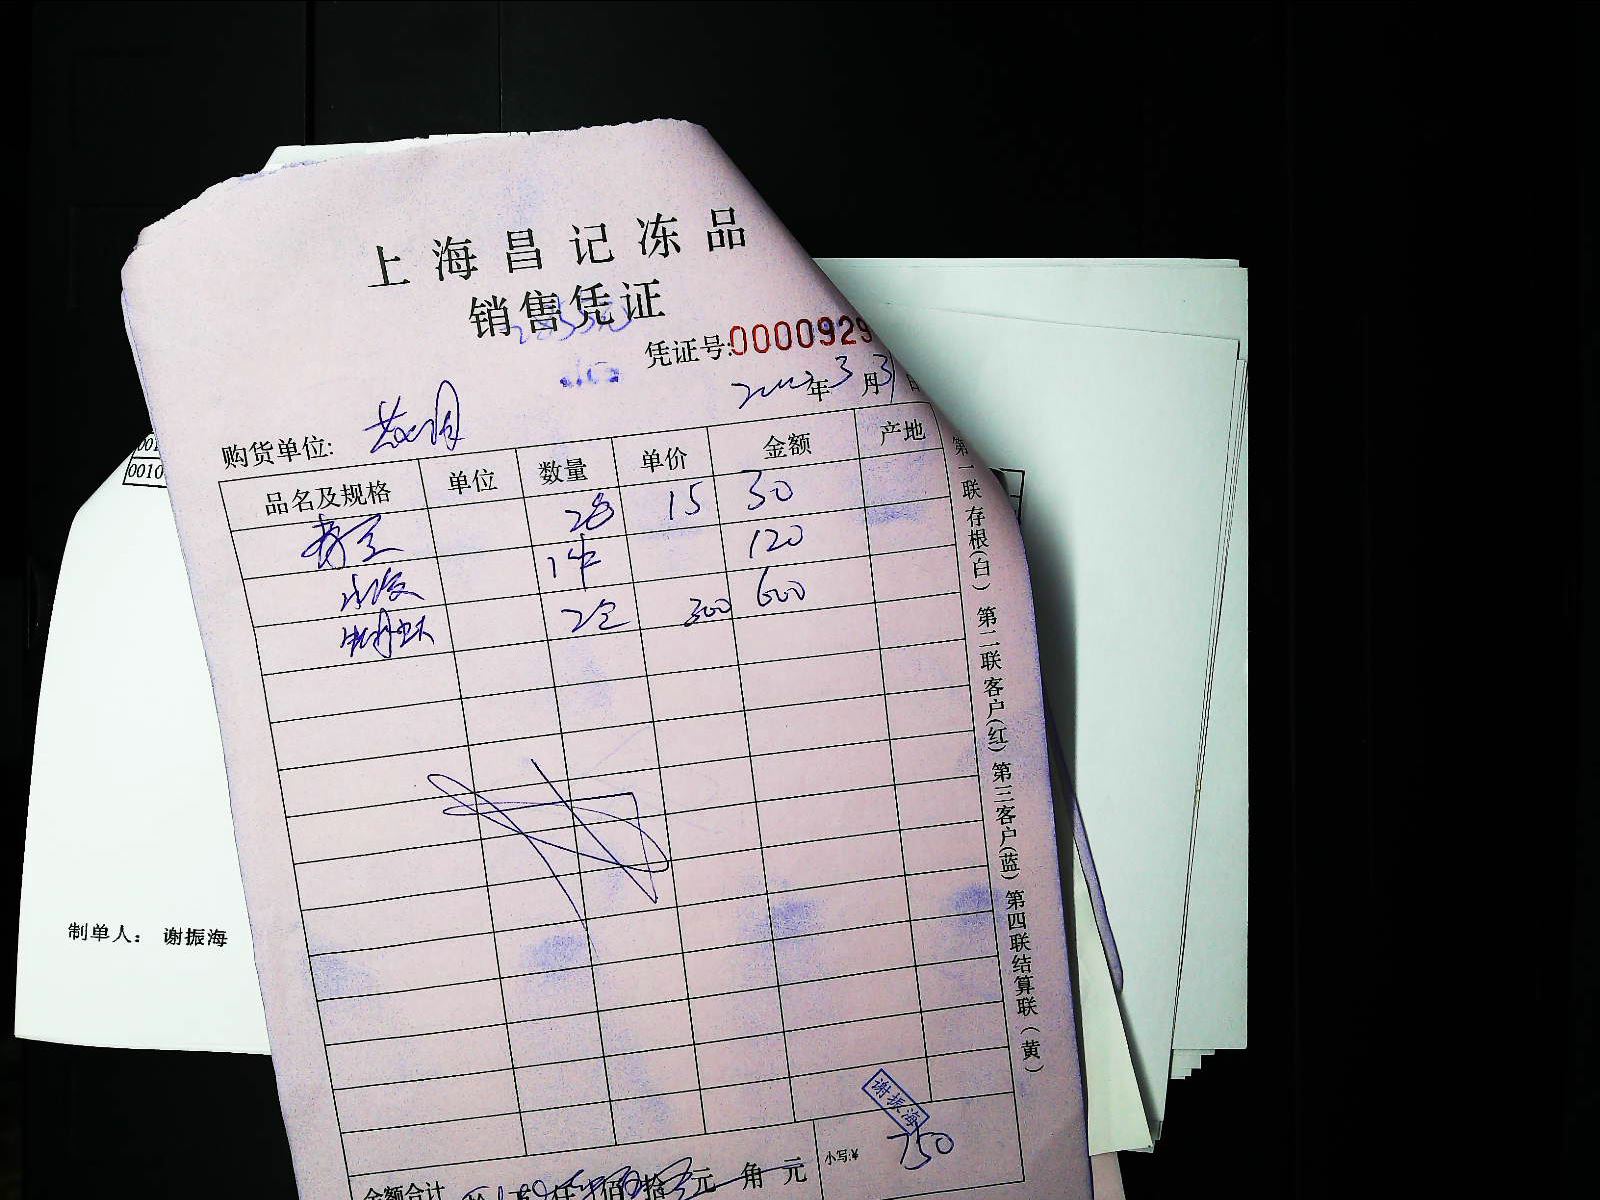 上海昌记冻品
销售凭证
凭证号:0000929
年3月3日
购货单位:
品名及规格 单位 数量 单价 金额 产地
15 30
1件 120
2包 300 600
第一联存根(白) 第二联客户(红) 第三客户(蓝) 第四联结算联(黄)
谢振海
金额合计 佰 拾 元 角 元 小写:¥ 750
0010
制单人: 谢振海